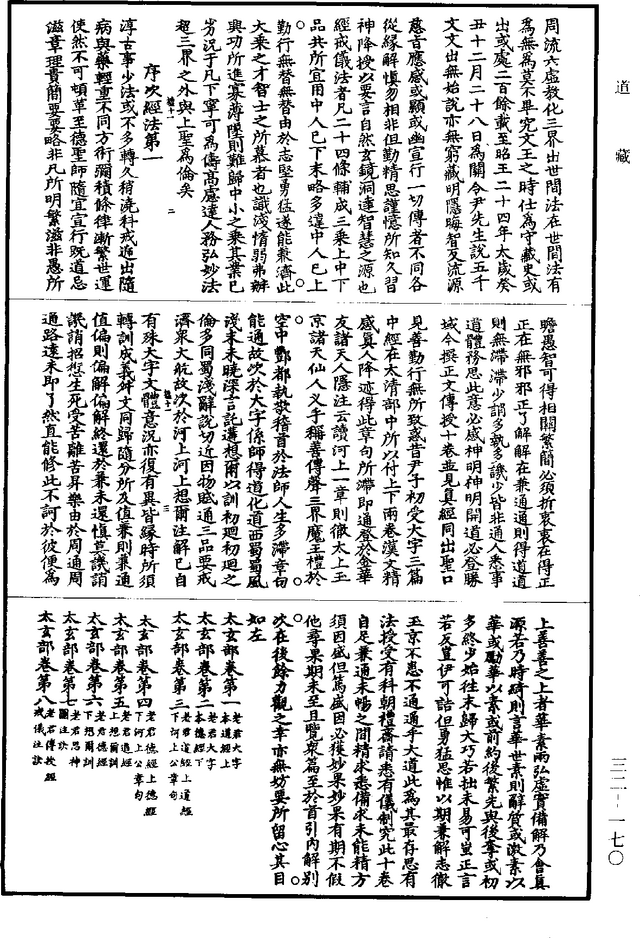 道藏
周流六虛教化三界出世間法在世間法有
為無為莫不畢究文王之時仕為守藏史或
出或處二百餘載至昭王二十四年太歲癸
丑十二月二十八日為關令尹先生說五千
文文出無始說亦無窮藏明隱晦智友流源
慈音應感或顯或幽宣行一切傳者不同各
從緣解慎勿相非但勤精思謹憶所知久習
神降授以要言自然玄鏡洞達智慧之源也
經戒儀法者凡二十四條輔成三乘上中下
品共所宜用中人已下未略多違中人已上
勤行無替無替由於志堅勇猛遂能兼濟此
大乘之才智士之所慕者也識淺情弱弗辦
與功所進寡薄墜則難歸中小之乘其業已
劣況于凡下寧可為儔高慮達人務弘妙法
超三界之外與上聖為倫矣
序次經法第一
淳古事少法或不多轉久稍澆科戒遂出隨
病與藥輕重不同方術彌積條律漸繁世運
使然不可頓革至德聖師隨宜宣行既道忌
滋章理貴簡要要略非凡所明繁滋非愚所
瞻愚智可得相關繁簡必須折衷衷在得正
正在無邪邪正了解解在兼通通則得道道
則無滯滯少謂多執多譏少皆非通人悉事
道體務思此意必感神明神明開道必登勝
域今撰正文傳授十卷並見真經同出聖口
見善勤行無所致惑昔尹子初受大字三篇
中經在太清部中所以付上下兩卷漢文精
感真人降迹得此章句所滯即通登於金華
友諸天人隱注云讀河上一章則徹太上玉
京諸天仙人叉手稱善傳聲三界魔王禮於
空中酆都執敬稽首於法師人生多滯章句
能通故次於大字係師得道化道西蜀蜀風
淺末未曉深言託遘想爾以訓初迴初迴之
倫多同蜀淺辭說切近因物賦通三品要戒
濟眾大航故次於河上河上想爾注解已自
有殊大字文體意況亦復有異皆緣時所須
轉訓成義舛文同歸隨分所及值兼則兼通
值偏則偏解偏解終還於兼未還慎莫譏誚
譏誚招愆生死受苦離苦昇樂由於周通周
通路遠未即了然直能修此不訶於彼便為
上善善之上者華素兩弘虛實備解乃會真
源若乃時謗則言華世素則辭質或激素以
華或勵華以素或前約後繁先與後奪或初
多終少始往末歸大巧若拙未易可豈正言
若反豈伊可詰但勇猛思惟以期兼解志徹
玉京不患不通通乎大道此為其最存思有
法授受有科朝禮齋請悉有儀制究此十卷
自足兼通未暢之間精求悉備求未能精方
須因感但篤感因必獲妙果妙果有期不假
他尋果期未至且覽眾篇至於首引內解別
次在後餘力觀之幸亦無妨要所留心其目
如左
太玄部卷第一 老君大字本道經上
太玄部卷第二 老君大字本德經下
太玄部卷第三 老君道經上道經下河上公章句
太玄部卷第四 老君德經上德經下河上公章句
太玄部卷第五 老君道經上想爾訓
太玄部卷第六 老君德經下想爾訓
太玄部卷第七 老君思神圖注訣
太玄部卷第八 老君傳授經戒儀注訣
三二－一七〇